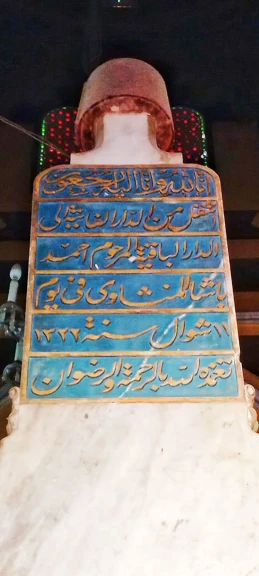 إنا لله وإنا إليه راجعون
انتقل من الدار الفانية إلى
الدار الباقية المرحوم احمد
باشا المنشاوى فى يوم
١١ شوال سنة ١٣٢٢
تغمده الله بالرحمة والرضوان